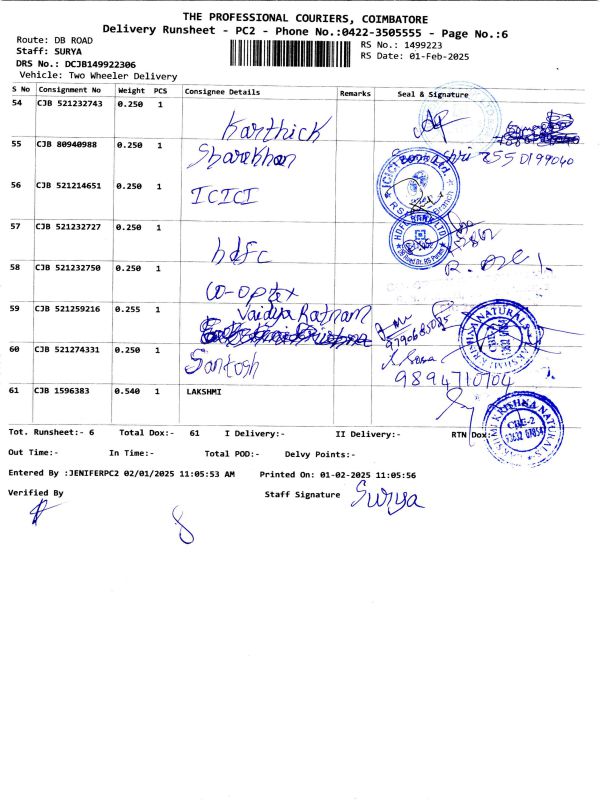 THE PROFESSIONAL COURIERS, COIMBATORE
Delivery Runsheet - PC2 - Phone No.:0422-3505555 - Page No.:6
Route: DB ROAD
RS No.: 1499223
Staff: SURYA
RS Date: 01-Feb-2025
DRS No.: DCJB149922306
Vehicle: Two Wheeler Delivery
S No Consignment No Weight PCS Consignee Details Remarks Seal & Signature
54 CJB 521232743 0.250 1 Karthick
55 CJB 80940988 0.250 1 Sharekhan
56 CJB 521214651 0.250 1 ICICI
ICICI Bank Ltd
57 CJB 521232727 0.250 1 hdfc
HDFC BANK LTD
58 CJB 521232750 0.250 1 co-optex
59 CJB 521259216 0.255 1 Vaidya Ratnam
60 CJB 521274331 0.250 1 Santosh
9894710704
61 CJB 1596383 0.540 1 LAKSHMI
LAKSHMI KRISHNA NATURALS
CBE-2
Tot. Runsheet:- 6 Total Dox:- 61 I Delivery:- II Delivery:- RTN Dox:
Out Time:- In Time:- Total POD:- Delvy Points:-
Entered By :JENIFERPC2 02/01/2025 11:05:53 AM Printed On: 01-02-2025 11:05:56
Verified By Staff Signature Surya